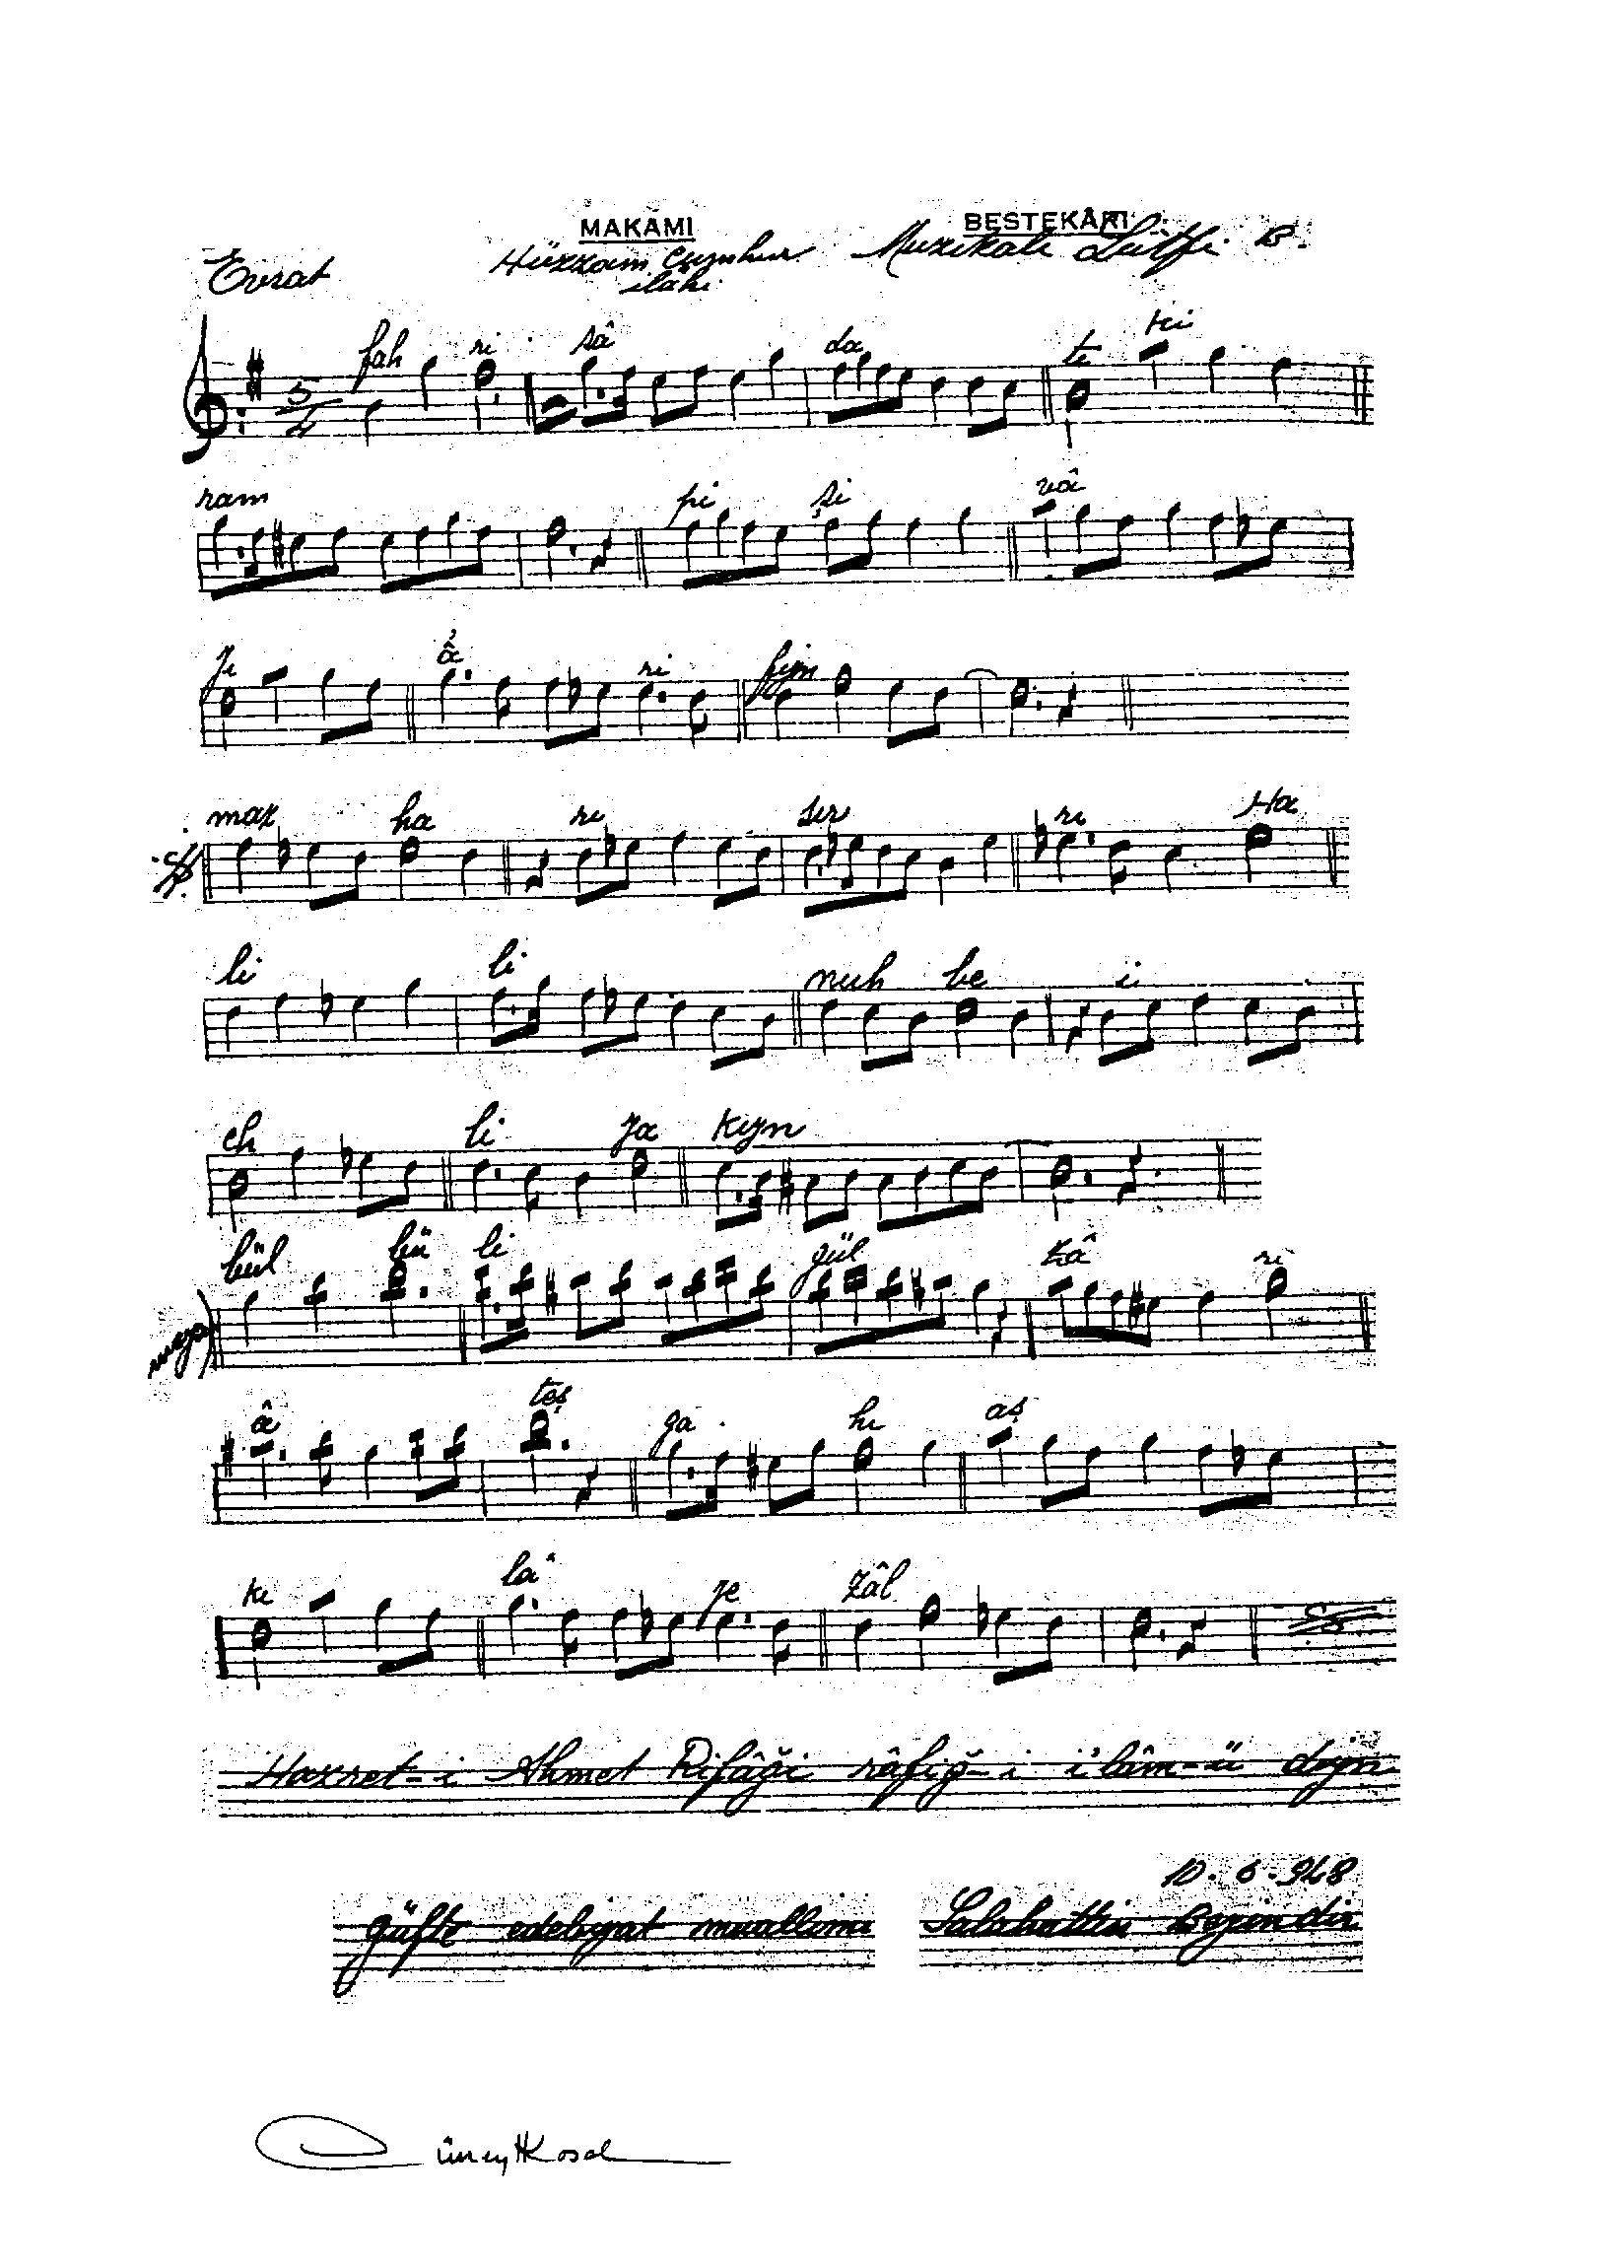 MAKAMI BESTEKÂRI
Evsat Hüzzam Cumhur Muzikalı Lütfi B.
ilâhi
5/4 fah ri sâ da ti ki
ram pi şi vâ
yi â ri fiyn
maz ha ri sır rı Ha
li li nuh be i
eh li ya kıyn
bül bü li gül zâ ri
meyan
â teş ga hı aş
kı lâ ye zâl
Hazret-i Ahmet Rifâği râfiğ-i i'lâm-ü diyn
10.6.948
güfte edebiyat muallimi Salahattin
Cüneyt Kosal